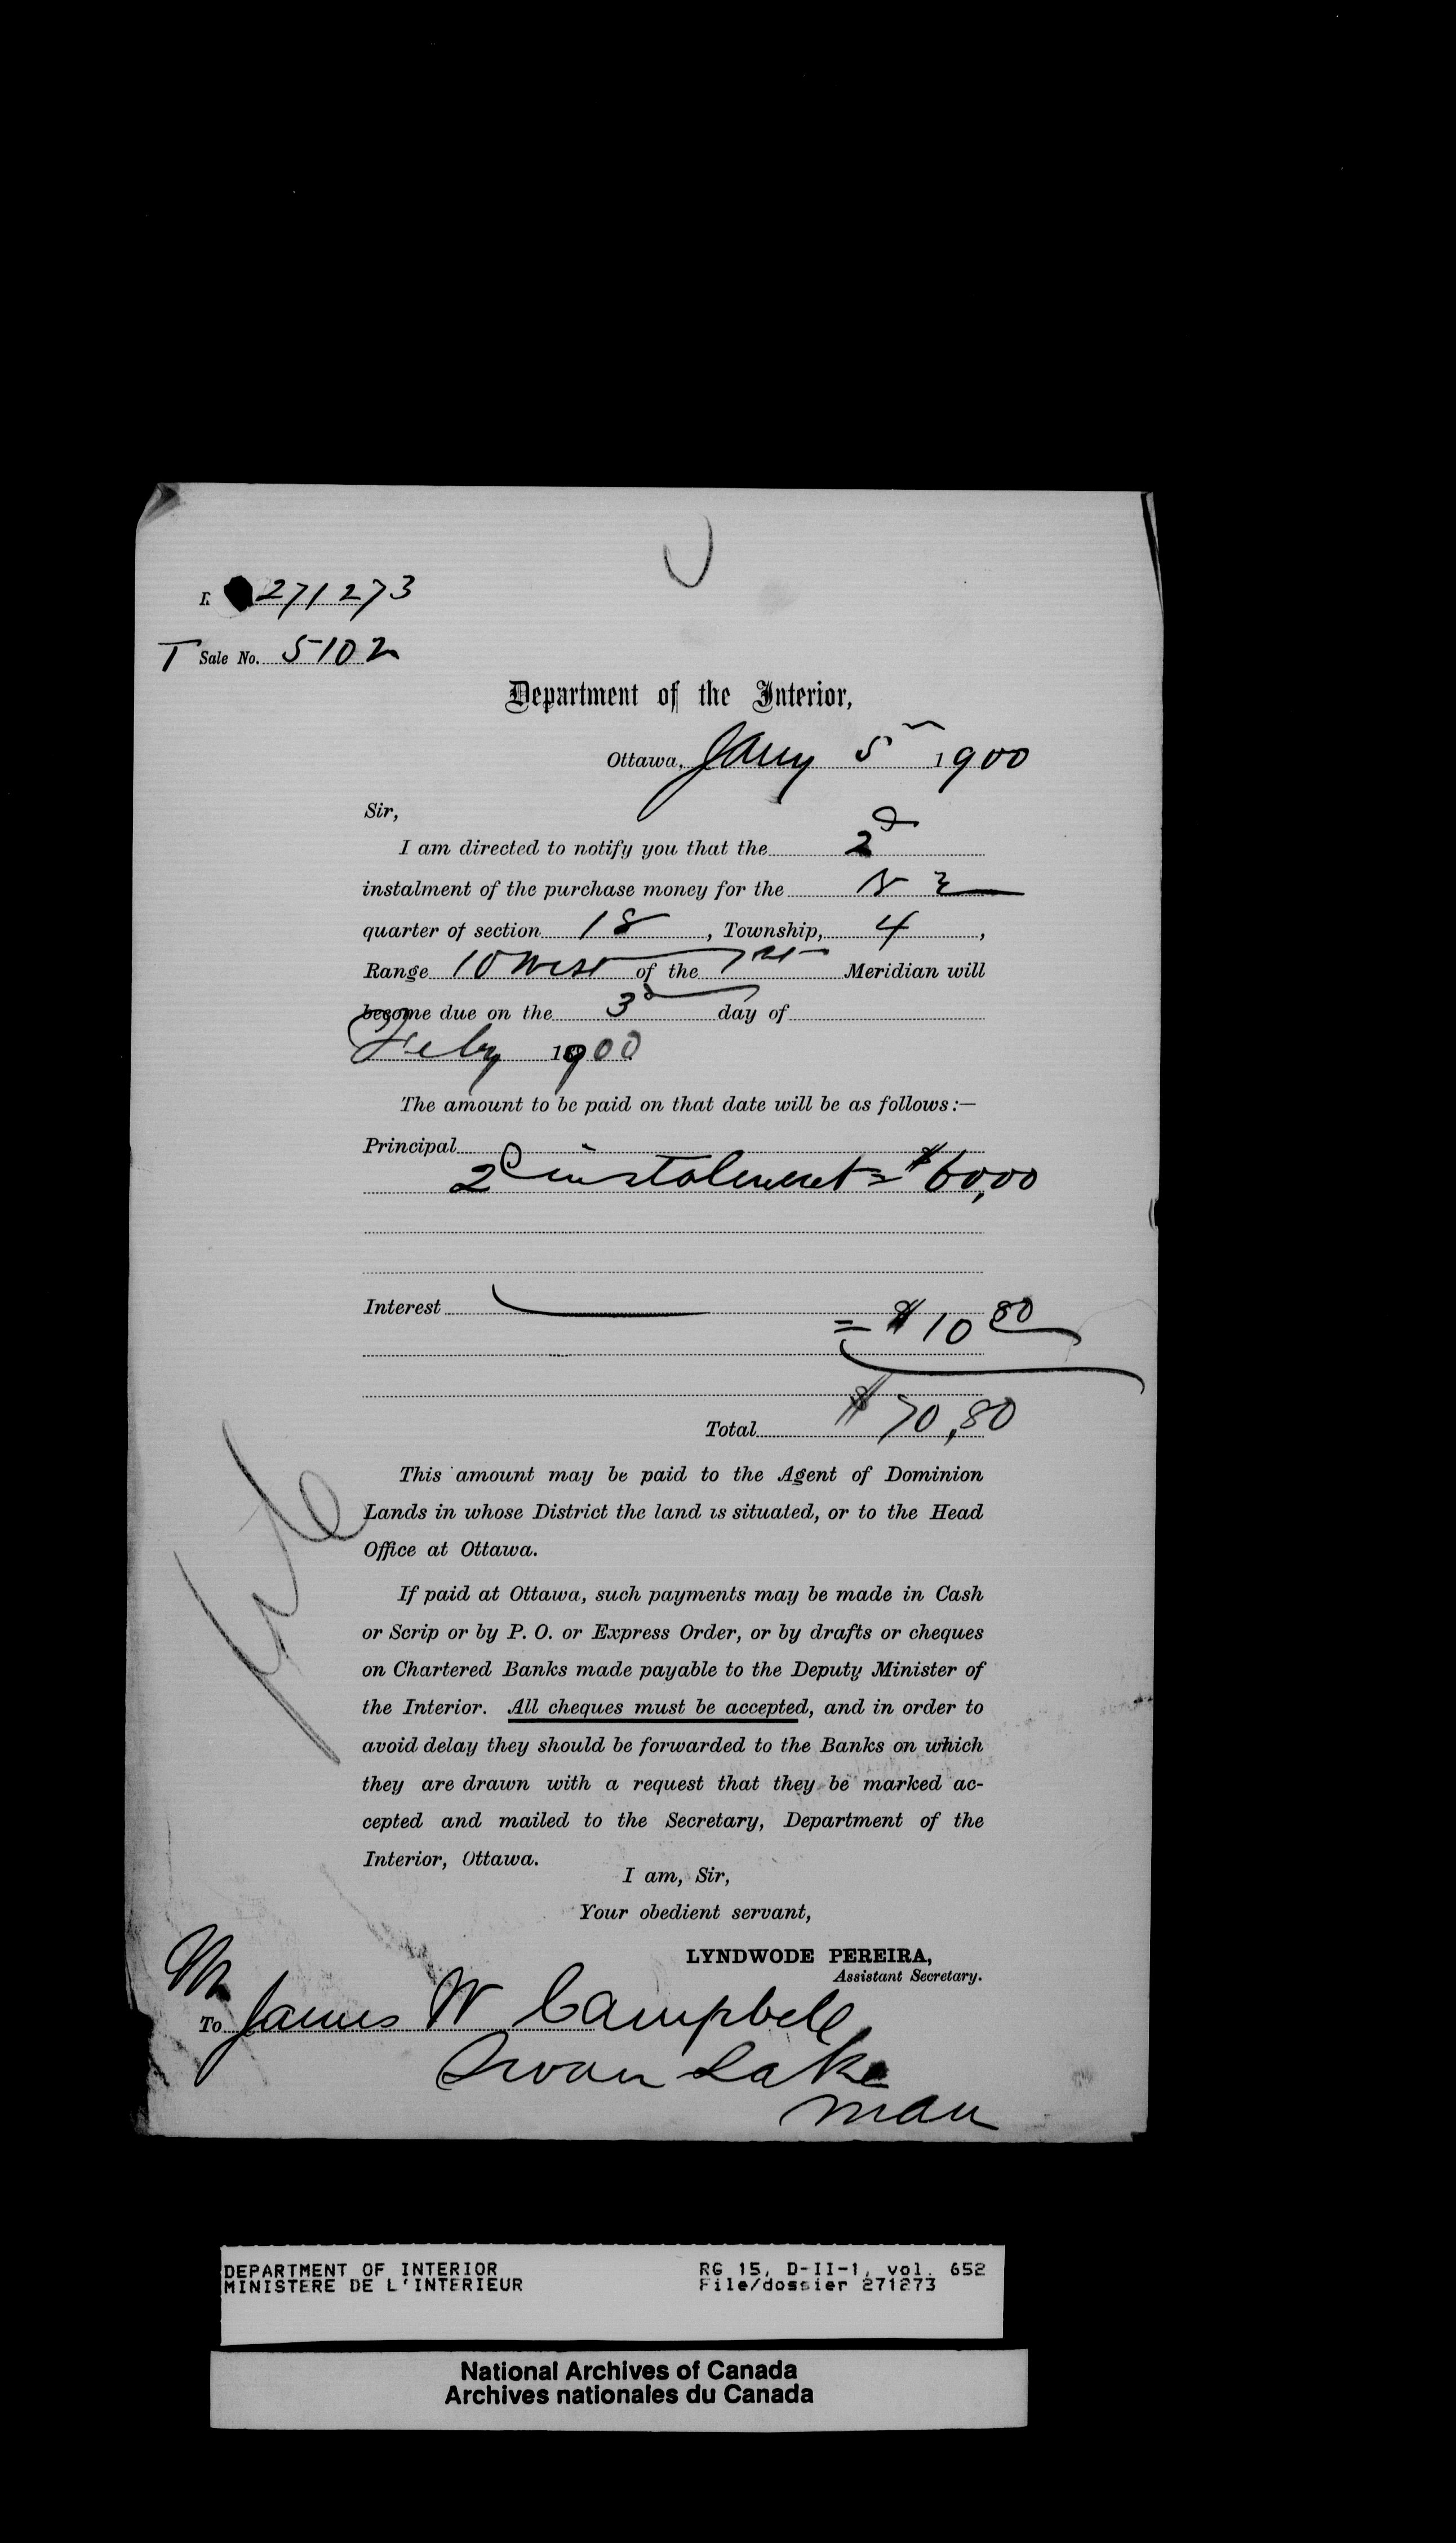 271273
T Sale No. 5102
Department of the Interior,
Ottawa, Jany 5 1900
Sir,
I am directed to notify you that the 2d
instalment of the purchase money for the N E
quarter of section 18, Township, 4,
Range 10 West of the 1st Meridian will
become due on the 3d day of
Feby 1900
The amount to be paid on that date will be as follows:—
Principal
2d instalment = $60,00
Interest
= $10 80
Total $70,80
This amount may be paid to the Agent of Dominion
Lands in whose District the land is situated, or to the Head
Office at Ottawa.
If paid at Ottawa, such payments may be made in Cash
or Scrip or by P. O. or Express Order, or by drafts or cheques
on Chartered Banks made payable to the Deputy Minister of
the Interior. All cheques must be accepted, and in order to
avoid delay they should be forwarded to the Banks on which
they are drawn with a request that they be marked ac-
cepted and mailed to the Secretary, Department of the
Interior, Ottawa.
I am, Sir,
Your obedient servant,
LYNDWODE PEREIRA,
Assistant Secretary.
Mr
To James W Campbell
Swan Lake
Man
DEPARTMENT OF INTERIOR RG 15, D-II-1, vol. 652
MINISTERE DE L'INTERIEUR File/dossier 271273
National Archives of Canada
Archives nationales du Canada